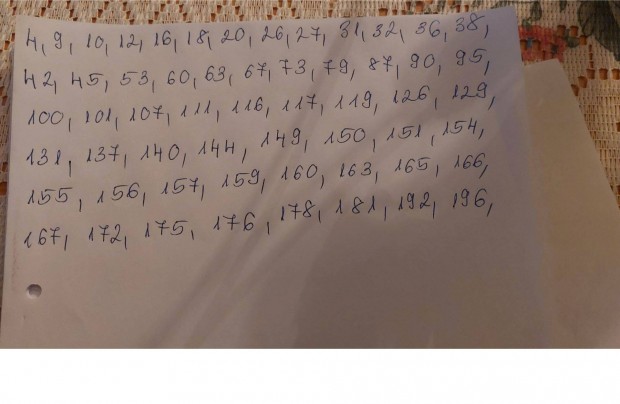 4, 9, 10, 12, 16, 18, 20, 26, 27, 31, 32, 36, 38,
42, 45, 53, 60, 63, 67, 73, 79, 87, 90, 95,
100, 101, 107, 111, 116, 117, 119, 126, 129,
131, 137, 140, 144, 149, 150, 151, 154,
155, 156, 157, 159, 160, 163, 165, 166,
167, 172, 175, 176, 178, 181, 192, 196,